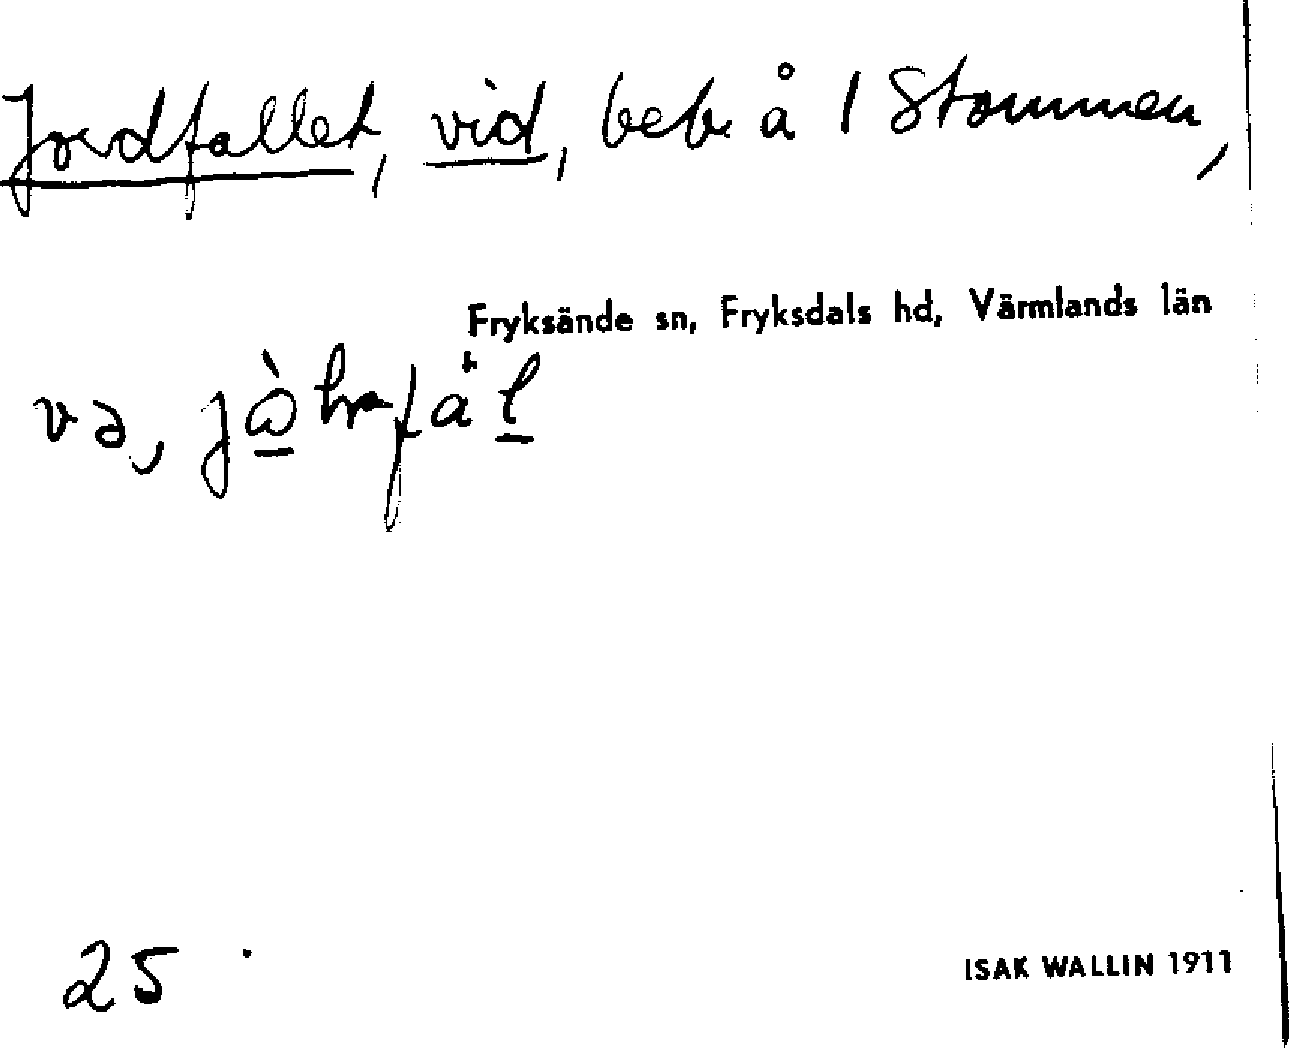 Jordfallet, vid, beb. å 1 Stommen,
Fryksände sn, Fryksdals hd, Värmlands län
25
ISAK WALLIN 1911